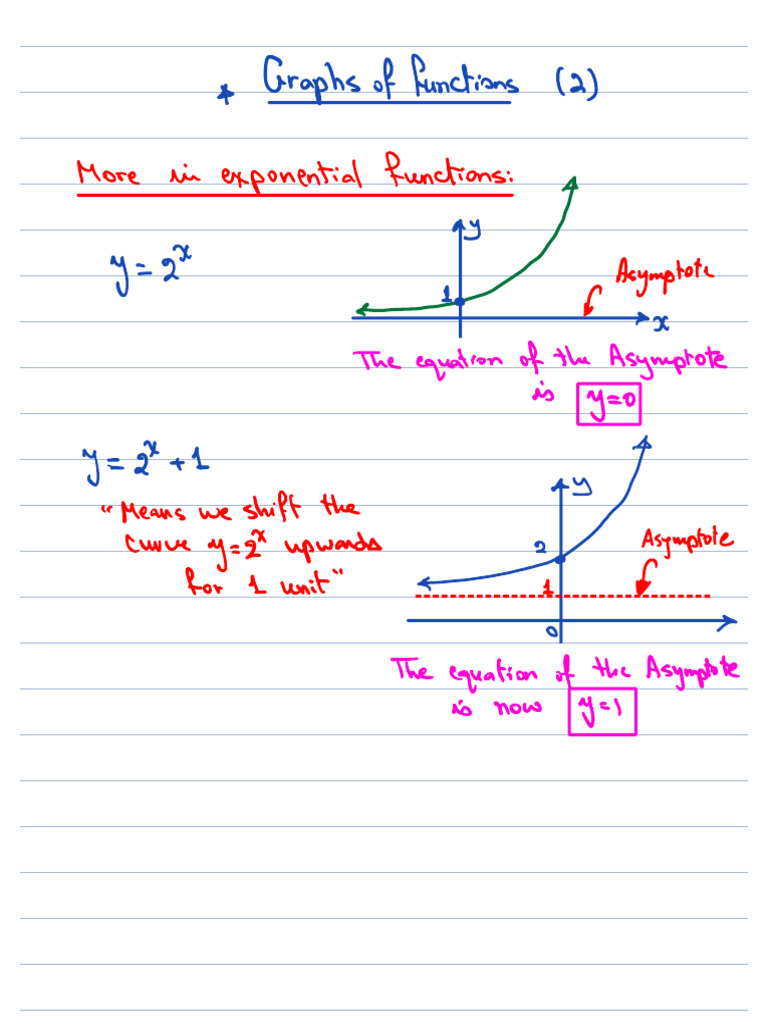 * Graphs of functions (2)
More in exponential functions:
y = 2^x
y
1
Asymptote
x
The equation of the Asymptote
is y=0
y = 2^x + 1
"Means we shift the
curve y=2^x upwards
for 1 unit"
y
2
Asymptote
1
0
The equation of the Asymptote
is now y=1